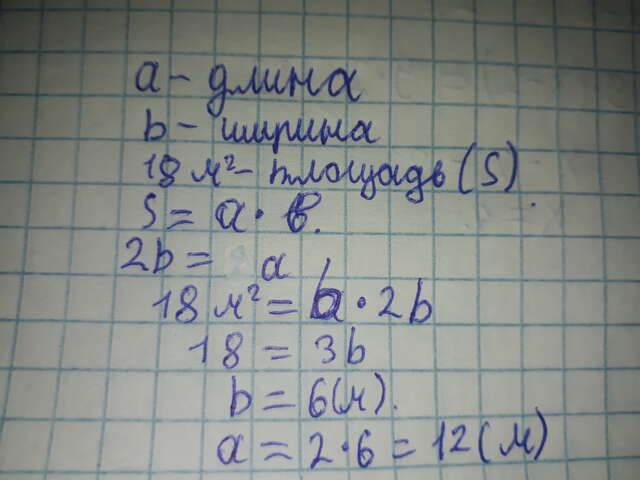 a - длина
b - ширина
18 м² - площадь (S).
S = a · b.
2b = a
18 м² = b · 2b
18 = 3b
b = 6 (м).
a = 2 · 6 = 12 (м)